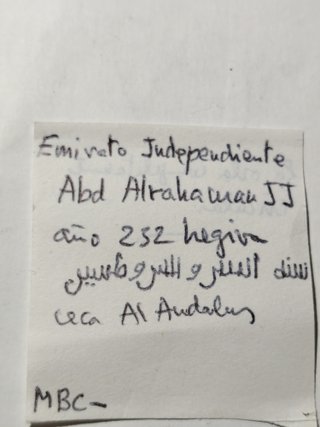 Emirato Independiente
Abd Alrahaman II
año 232 hegira
سنة
ceca Al Andalus
MBC-